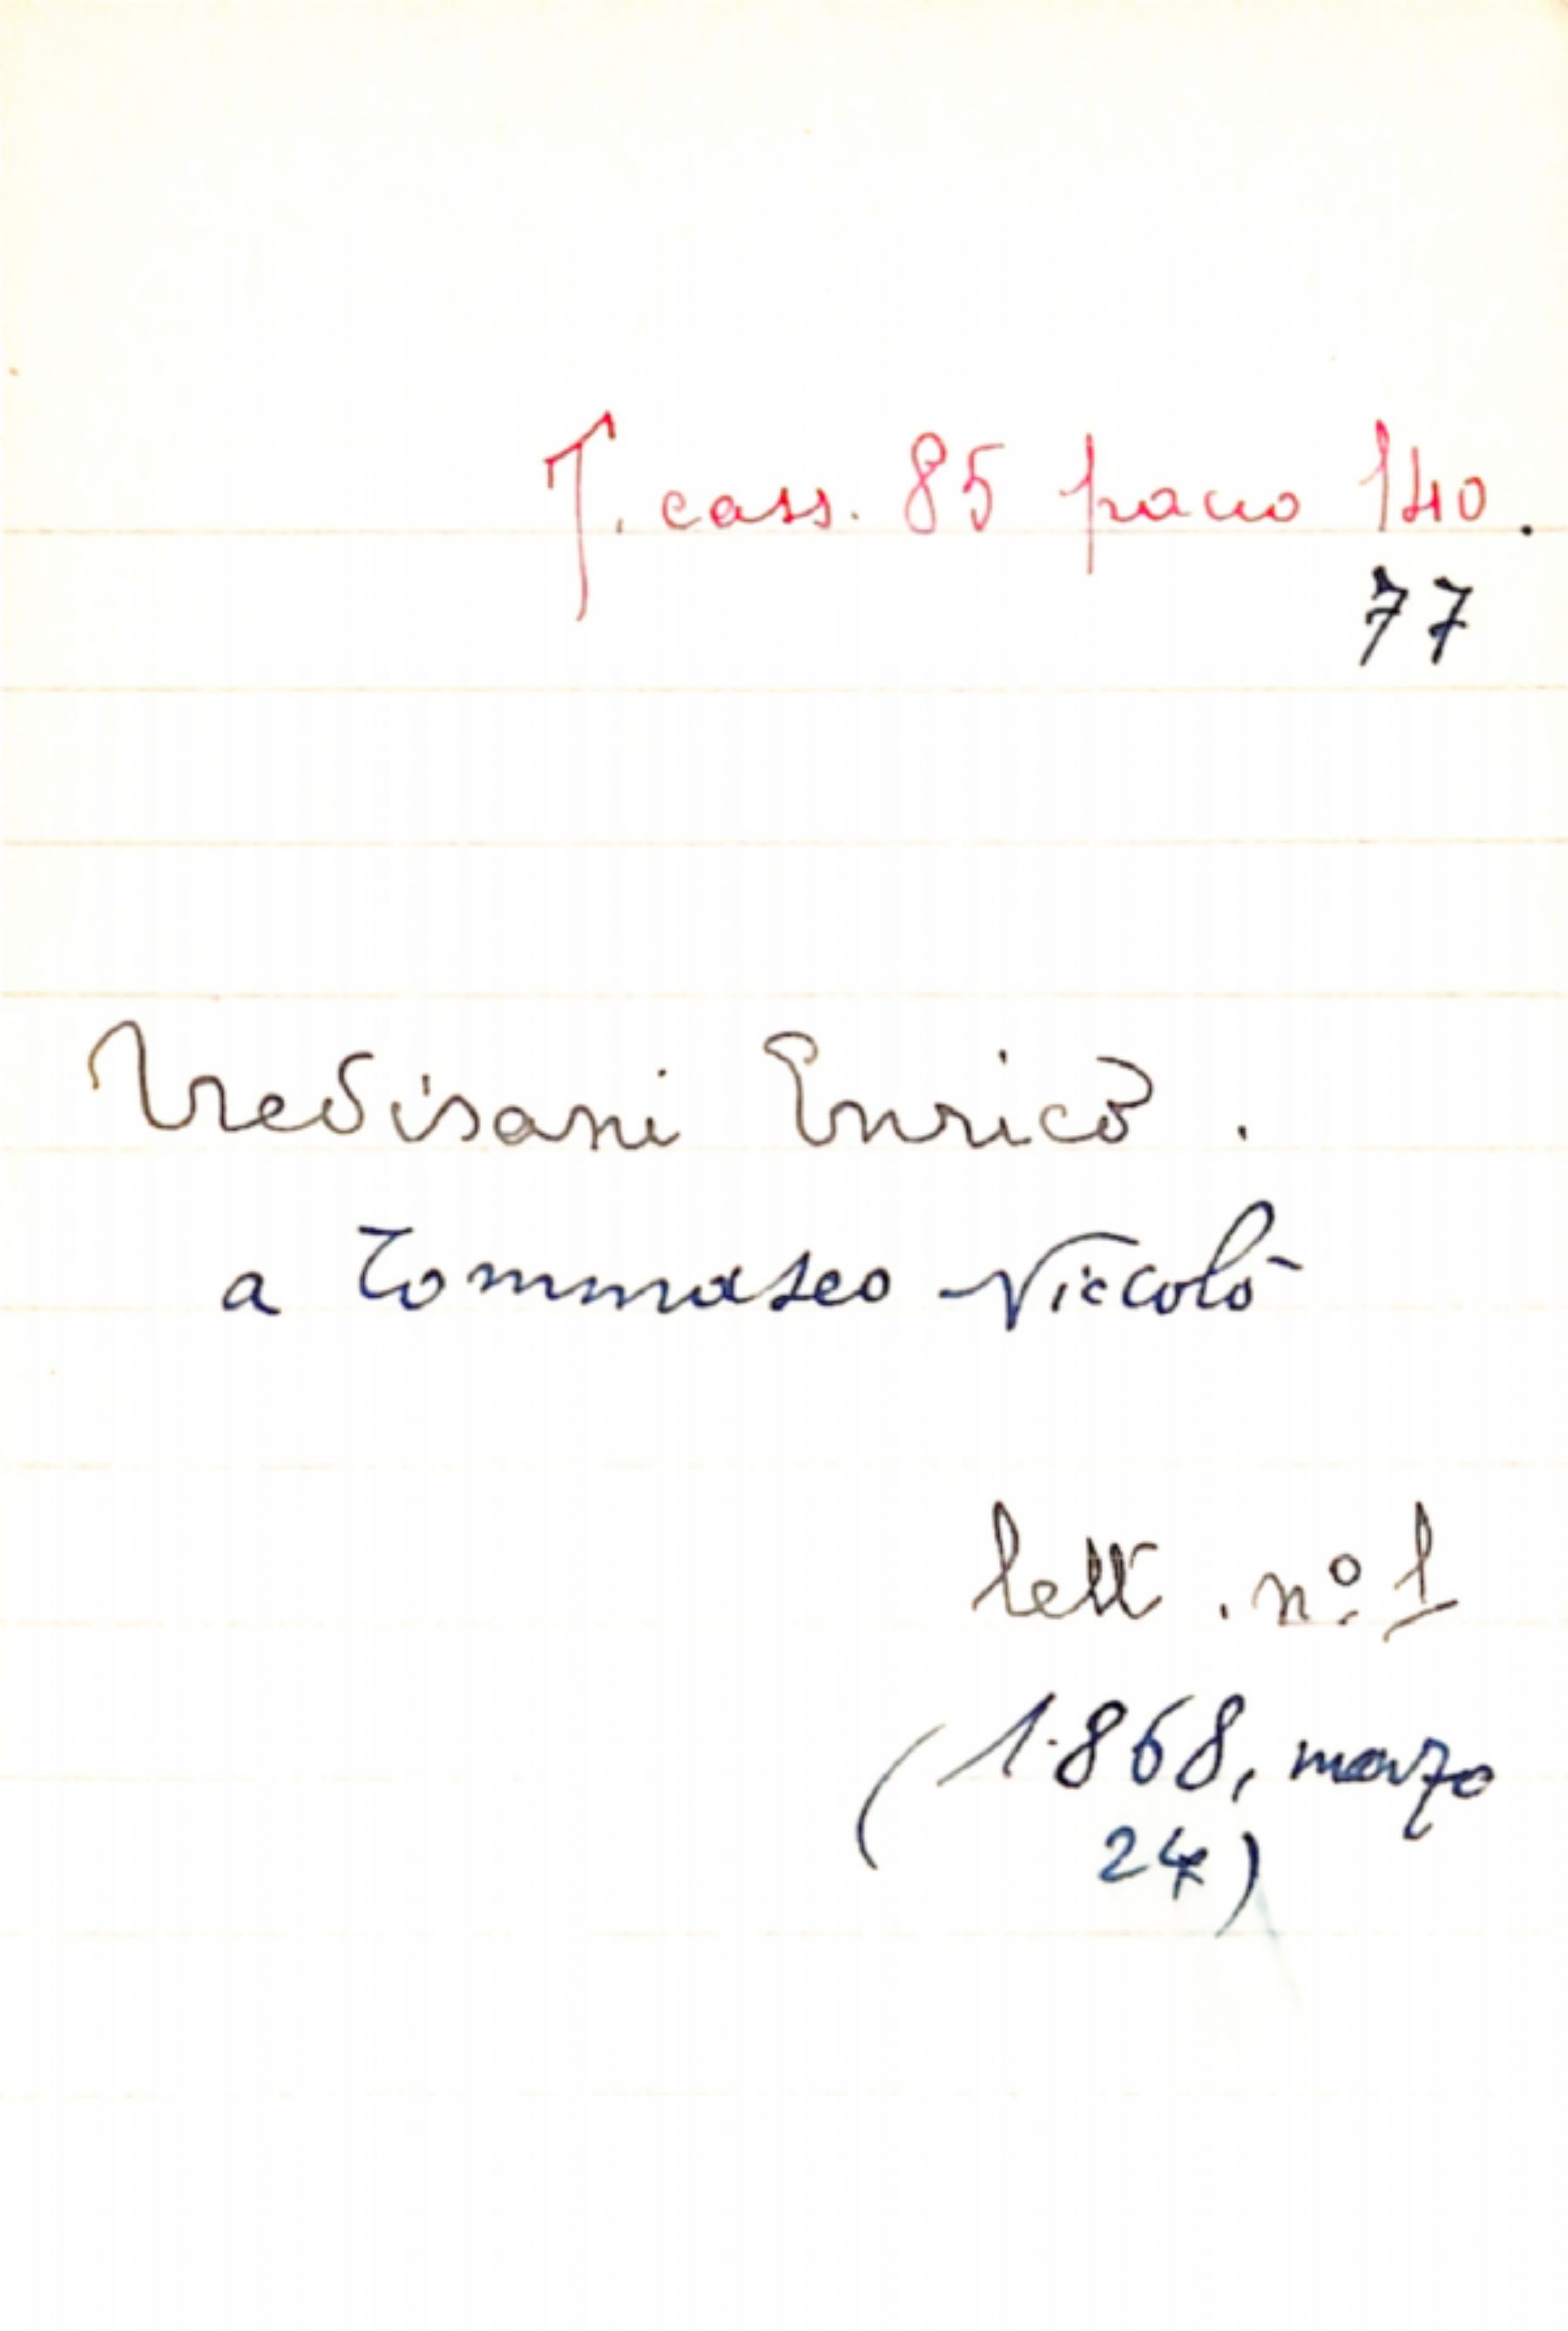 T. cass. 85 pacco 140.
77
Trevisani Enrico.
a Tommaseo Niccolò
lett. nº 1
(1868, marzo
24)